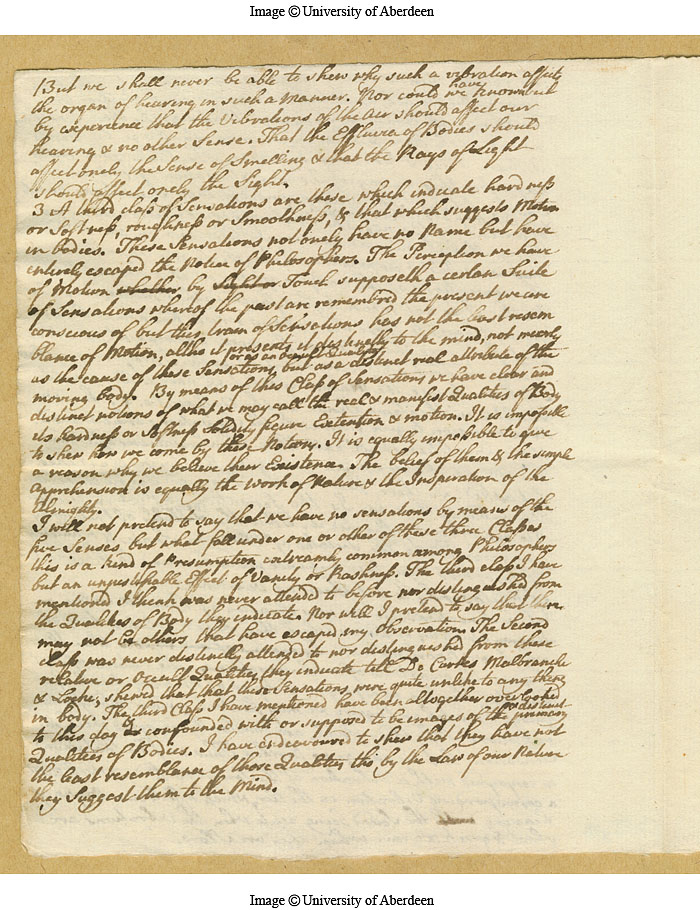 Image © University of Aberdeen
But we shall never be able to shew why such a vibration affects
the organ of hearing in such a Manner. Nor could we have known but
by experience that the Vibrations of the Air should affect our
hearing & no other Sense. That the Effluvia of Bodies should
affect onely the Sense of Smelling & that the Rays of Light
should affect onely the Sight.
3 A third class of Sensations are these which indicate hardness
or Softness, roughness or Smoothness, & that which suggests Motion
in bodies. These Sensations not onely have no Name but have
intirely escaped the Notice of Philosophers. The Perception we have
of Motion whether by Sight or Touch supposeth a certan Suite
of Sensations whereof the past are remembred the present we are
conscious of but this train of Sensations has not the least resem
blance of Motion, altho it presents it distinctly to the mind, not meerly
as the cause of these Sensations, but as a distinct real attribute of the
moving body. By means of this Class of Sensations we have clear and
distinct notions of what we may call the real & manifest Qualities of Body
its hardness or Softness Solidity figure Extention & motion. It is impossible
to shew how we come by these Notions. It is equally impossible to give
a reason why we believe their Existence. The belief of them & the simple
apprehension is equally the Work of Nature & the Inspiration of the
Almighty.
I will not pretend to say that we have no sensations by means of the
five Senses but what fall under one or other of these three Classes
this is a kind of Presumption extreamly common among Philosophers
but an unpardonable Effect of Vanity or Rashness. The third class I have
mentioned I think was never attended to before nor distinguished from
the Qualities of Body they indicate. Nor will I pretend to say that there
may not be others that have escaped my Observation. The Second
class was never distinctly attended to nor distinguished from these
relative or Occult Qualities they indicate till De Cartes Malbranche
& Locke, shewed that these Sensations, were quite unlike to any thing
in body. The third Class I have mentioned have been altogether overlooked
to this day & confounded with or supposed to be images of the primary
Qualities of Bodies. I have endeavoured to shew that they have not
the least resemblance of those Qualities tho by the Law of our Nature
they Suggest them to the Mind.
Image © University of Aberdeen